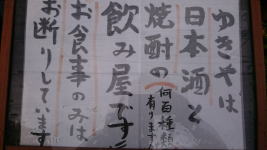 ゆきやは
日本酒と
焼酎の(何百種類
有ります
飲み屋です
お食事のみは
お断りしています